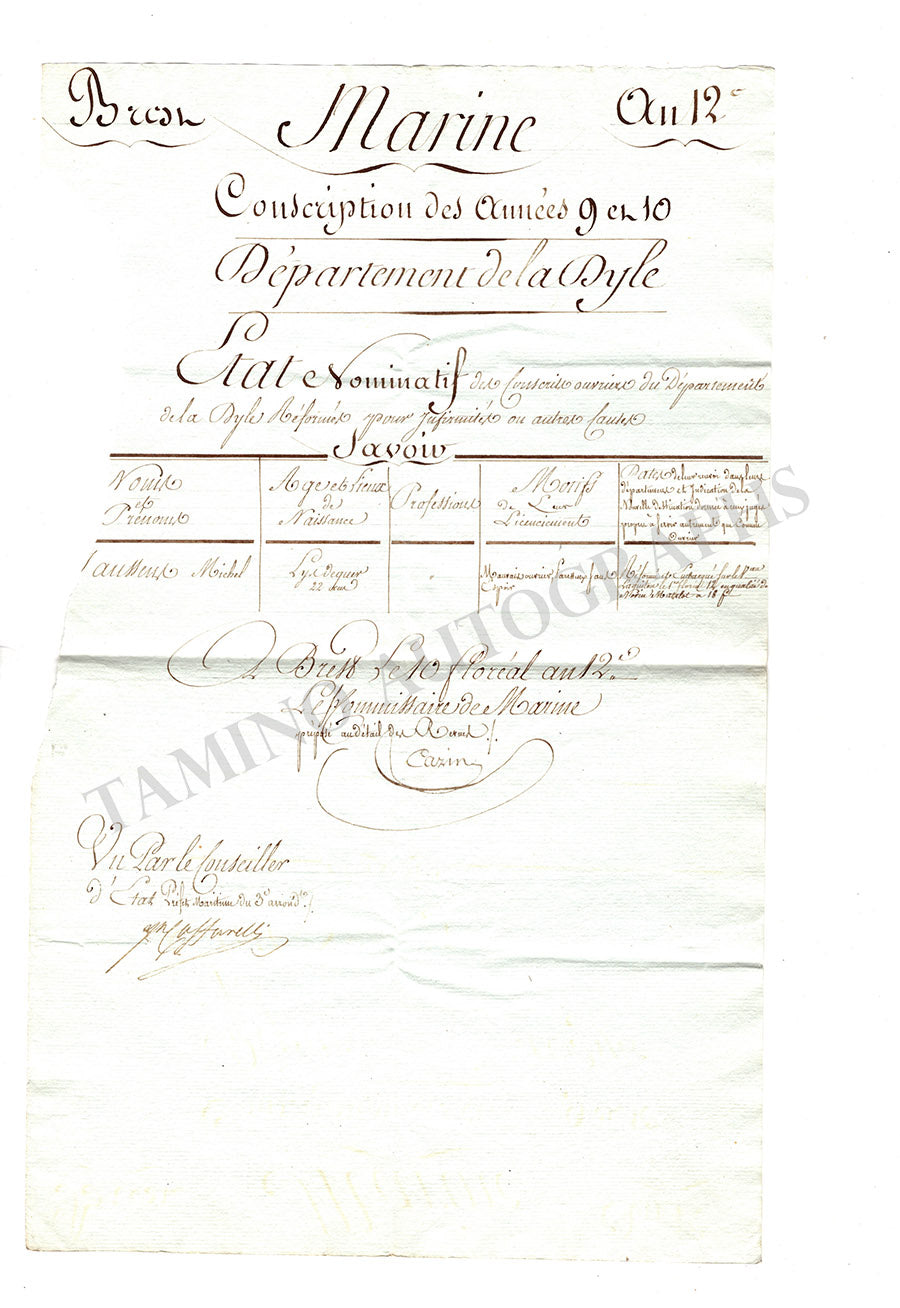 Brest
Marine
An 12e
Conscription des Années 9 et 10
Département de la Dyle
Etat Nominatif des Conscrits ouvriers du Département
de la Dyle Réformés pour Infirmités ou autres Causes
Savoir
Noms
et
Prénoms
Age et Lieux
de
Naissance
Professions
Motifs
De Leur
Licenciement
Dates de leur envoi dans leurs
départemens et Indication de la
Nouvelle destination donnée à ceux jugés
propres à servir autrement que Comme
Ouvrier
Janssens Michel
22 ans
"
Mauvais ouvrier
Espoir
Réformé et Embarqué sur le Vau
A Brest Le 10 floréal an 12e
Le Commissaire de Marine
préposé au détail des Revues /.
Cazin
Vu Par le Conseiller
d'Etat Préfet Maritime du 3e arrondt /.
Caffarelli
TAMINO AUTOGRAPHS